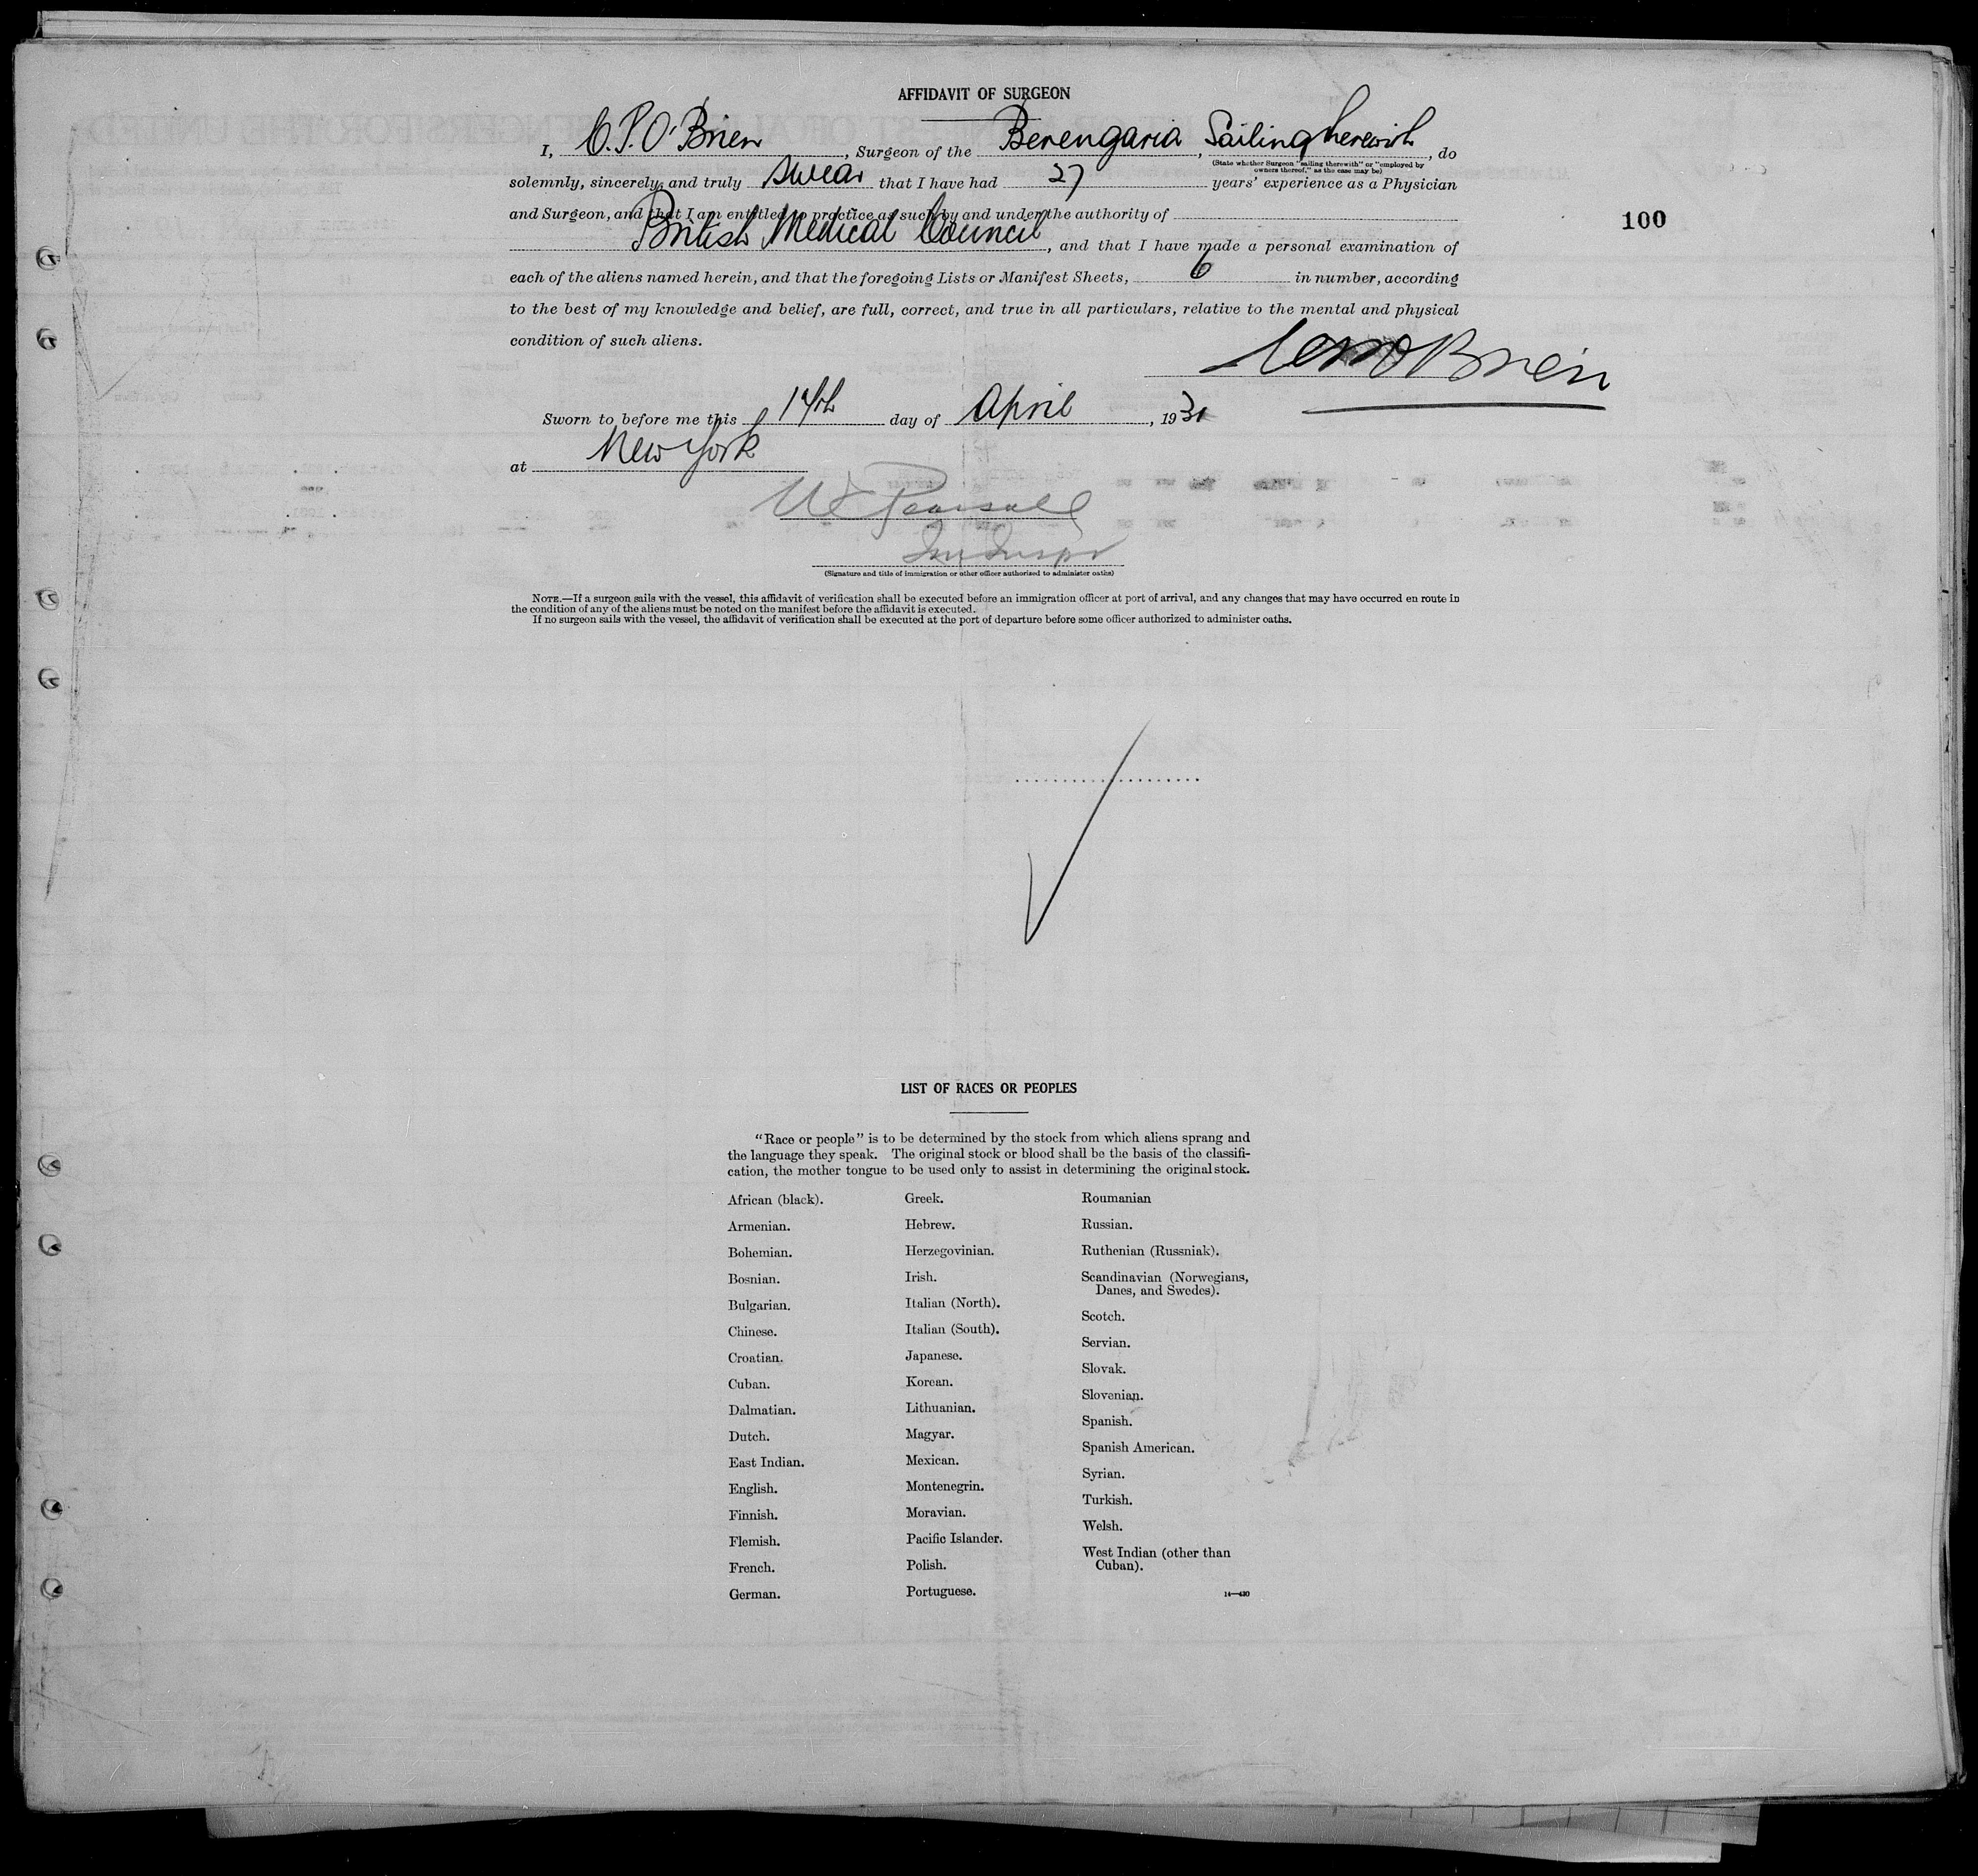 AFFIDAVIT OF SURGEON
I, C.P. O'Brien, Surgeon of the Berengaria, Sailing therewith, do
(State whether Surgeon "sailing therewith" or "employed by
owners thereof," as the case may be)
solemnly, sincerely, and truly swear that I have had 27 years' experience as a Physician
and Surgeon, and that I am entitled to practice as such by and under the authority of
100
British Medical Council, and that I have made a personal examination of
each of the aliens named herein, and that the foregoing Lists or Manifest Sheets, 6 in number, according
to the best of my knowledge and belief, are full, correct, and true in all particulars, relative to the mental and physical
condition of such aliens.
O'Brien
Sworn to before me this day of April, 1931
at New York
Pearsall
(Signature and title of immigration or other officer authorized to administer oaths)
NOTE.—If a surgeon sails with the vessel, this affidavit of verification shall be executed before an immigration officer at port of arrival, and any changes that may have occurred en route in
the condition of any of the aliens must be noted on the manifest before the affidavit is executed.
If no surgeon sails with the vessel, the affidavit of verification shall be executed at the port of departure before some officer authorized to administer oaths.
LIST OF RACES OR PEOPLES
"Race or people" is to be determined by the stock from which aliens sprang and
the language they speak. The original stock or blood shall be the basis of the classifi-
cation, the mother tongue to be used only to assist in determining the original stock.
African (black).
Armenian.
Bohemian.
Bosnian.
Bulgarian.
Chinese.
Croatian.
Cuban.
Dalmatian.
Dutch.
East Indian.
English.
Finnish.
Flemish.
French.
German.
Greek.
Hebrew.
Herzegovinian.
Irish.
Italian (North).
Italian (South).
Japanese.
Korean.
Lithuanian.
Magyar.
Mexican.
Montenegrin.
Moravian.
Pacific Islander.
Polish.
Portuguese.
Roumanian
Russian.
Ruthenian (Russniak).
Scandinavian (Norwegians,
Danes, and Swedes).
Scotch.
Servian.
Slovak.
Slovenian.
Spanish.
Spanish American.
Syrian.
Turkish.
Welsh.
West Indian (other than
Cuban).
14—430